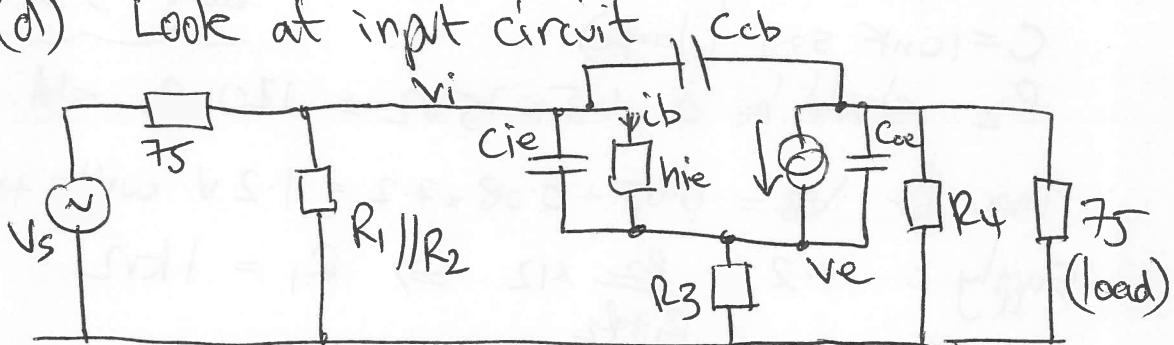 (d) Look at input circuit
Ccb
Vi
75
Cie
ib
hie
Coe
Vs
R1//R2
R3
ve
R4
75
(load)